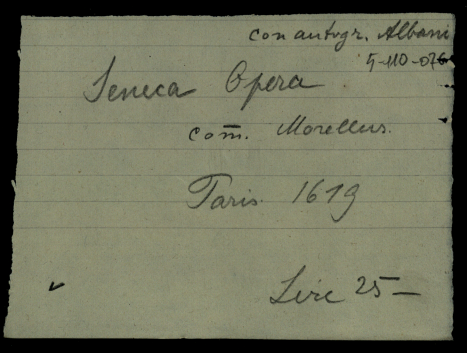 con autogr. Albani
5-110-076
Seneca Opera
com̄. Morellus.
Paris. 1619
Lire 25—